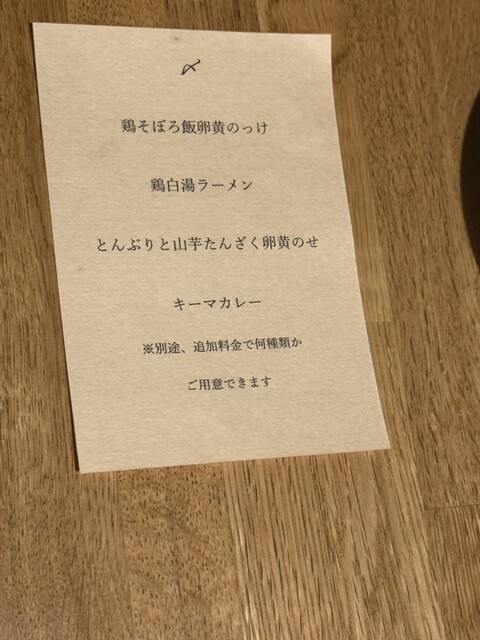 〆
鶏そぼろ飯卵黄のっけ
鶏白湯ラーメン
とんぶりと山芋たんざく卵黄のせ
キーマカレー
※別途、追加料金で何種類か
ご用意できます